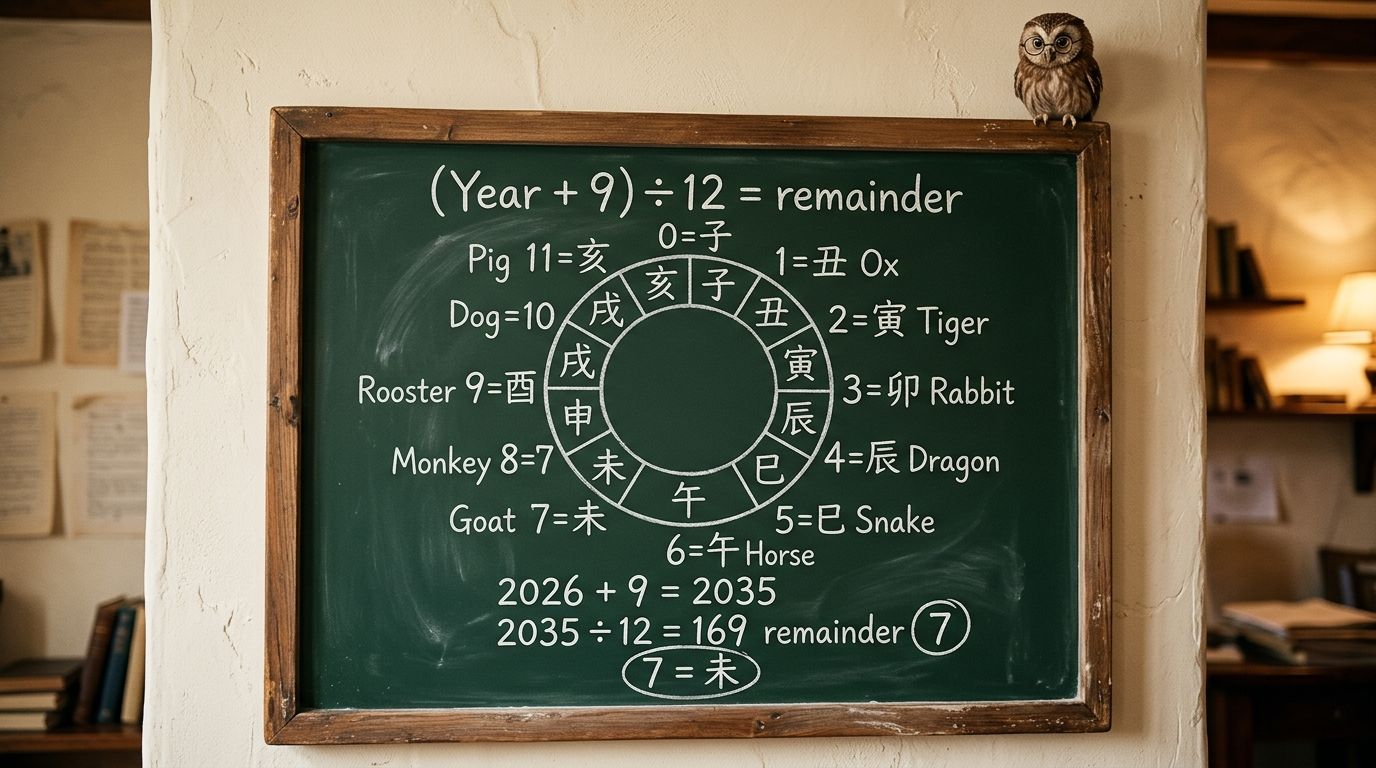 (Year + 9) ÷ 12 = remainder
0=子
Pig 11=亥
1=丑 Ox
Dog=10
2=寅 Tiger
Rooster 9=酉
3=卯 Rabbit
Monkey 8=7
4=辰 Dragon
Goat 7=未
5=巳 Snake
6=午 Horse
亥
子
丑
寅
辰
巳
午
未
申
戌
戌
2026 + 9 = 2035
2035 ÷ 12 = 169 remainder 7
7 = 未